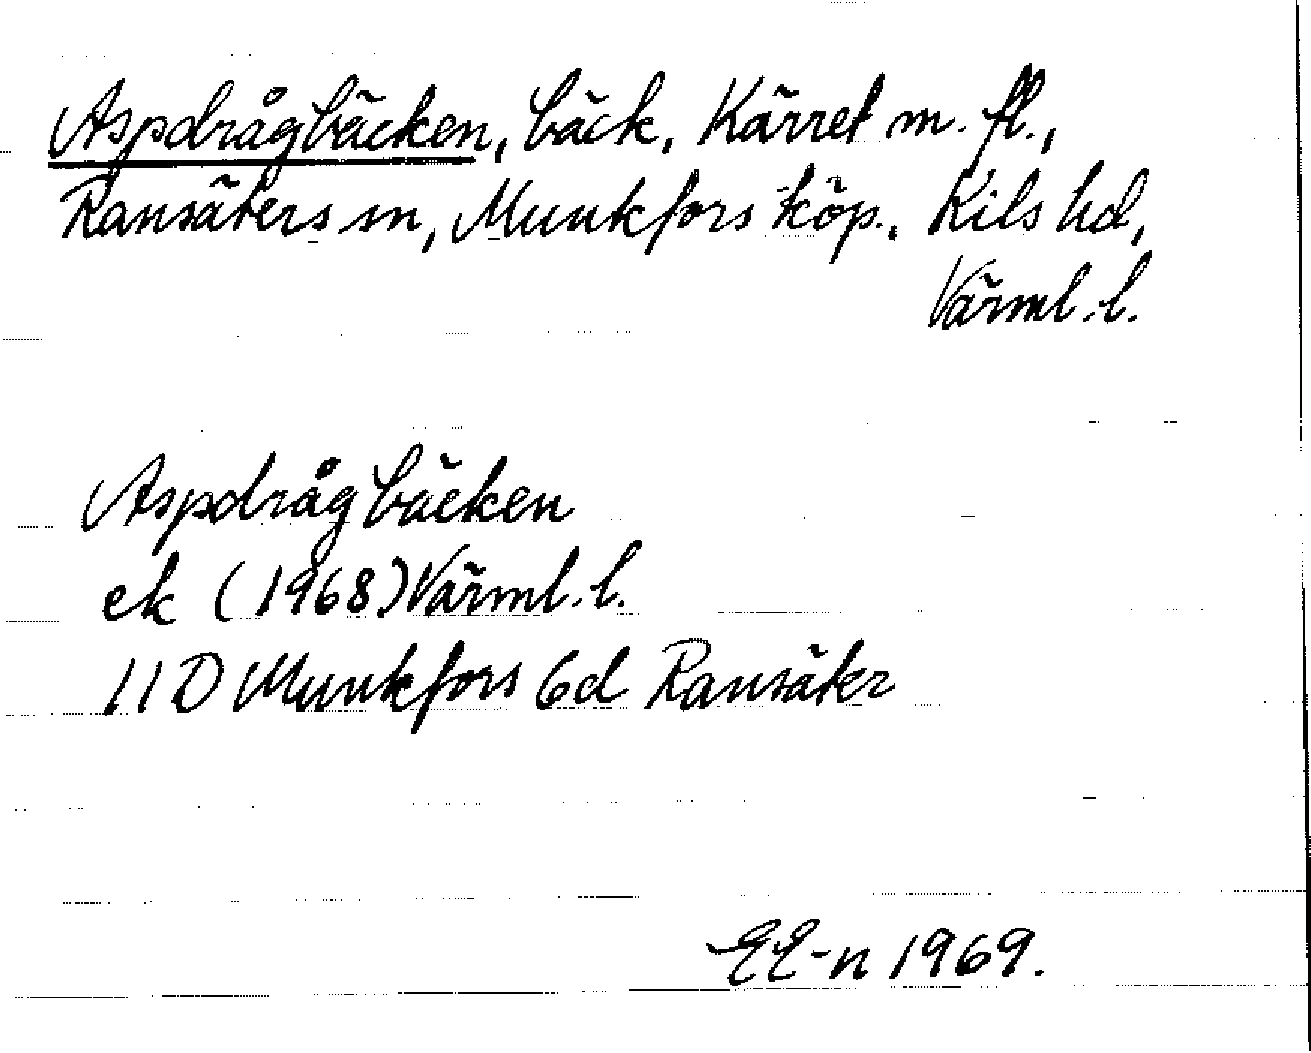 Aspdrågbäcken, bäck, Kärret m. fl.,
Ransäters sn, Munkfors köp., Kils hd,
Värml. l.
Aspdrågbäcken
ek (1968) Värml. l.
11D Munkfors 6d Ransäter
EE-n 1969.